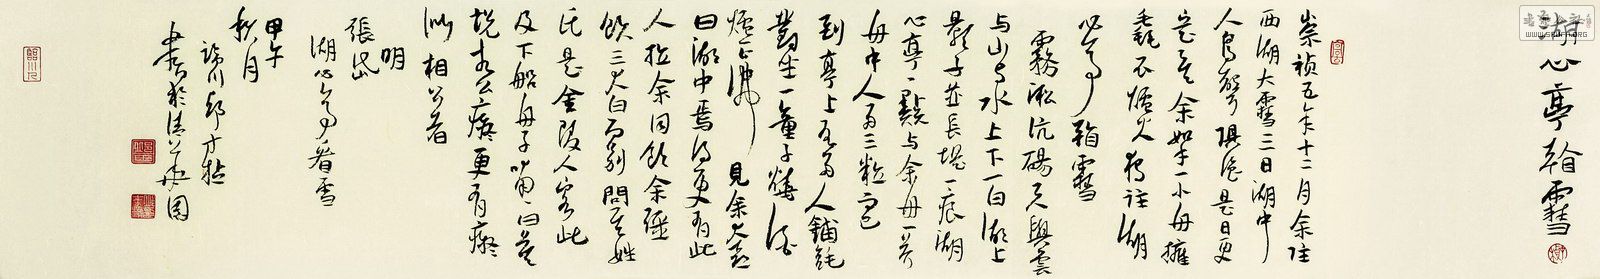 湖心亭看雪
崇禎五年十二月余住
西湖大雪三日湖中
人鳥聲俱絕是日更
定矣余拏一小舟擁
毳衣爐火獨往湖
心亭看雪
霧淞沆碭天與雲
與山與水上下一白湖上
影子惟長堤一痕湖
心亭一點與余舟一芥
舟中人兩三粒而已
到亭上有兩人鋪氈
對坐一童子燒酒
爐正沸 見余大喜
曰湖中焉得更有此
人拉余同飲余強
飲三大白而別問其姓
氏是金陵人客此
及下船舟子喃喃曰莫
說相公癡更有癡
似相公者
明
張岱
湖心亭看雪
甲午
秋月
潁川邱才楨
書於清華園